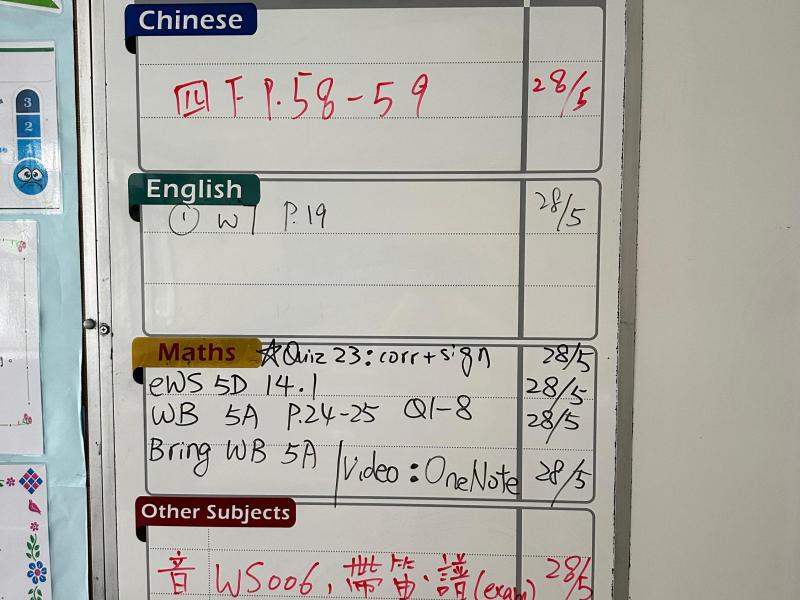 Chinese
四下 P.58-59 28/5
English
① W1 P.19 28/5
Maths ☆Quiz 23: corr + sign 28/5
eWS 5D 14.1 28/5
WB 5A P.24-25 Q1-8 28/5
Bring WB 5A / Video: OneNote 28/5
Other Subjects
音 WS006, 帶笛.譜(exam) 28/5
3
2
1